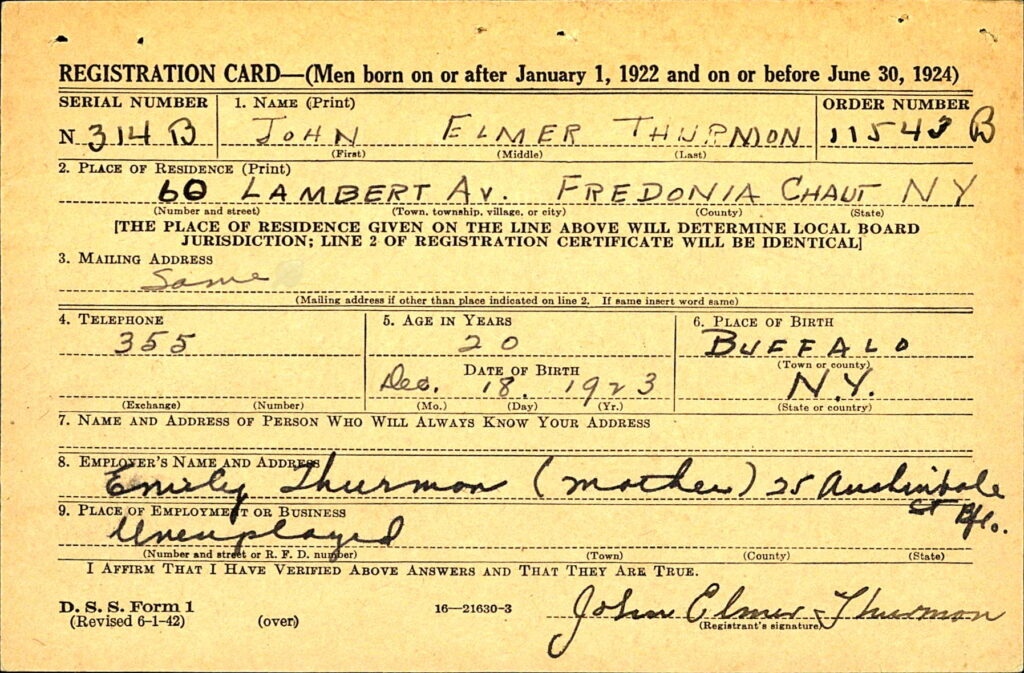 REGISTRATION CARD—(Men born on or after January 1, 1922 and on or before June 30, 1924)
SERIAL NUMBER 1. NAME (Print) ORDER NUMBER
N 314 B JOHN ELMER THURMON 11543 B
(First) (Middle) (Last)
2. PLACE OF RESIDENCE (Print)
60 LAMBERT AV. FREDONIA CHAUT NY
(Number and street) (Town, township, village, or city) (County) (State)
[THE PLACE OF RESIDENCE GIVEN ON THE LINE ABOVE WILL DETERMINE LOCAL BOARD
JURISDICTION; LINE 2 OF REGISTRATION CERTIFICATE WILL BE IDENTICAL]
3. MAILING ADDRESS
Same
(Mailing address if other than place indicated on line 2. If same insert word same)
4. TELEPHONE 5. AGE IN YEARS 6. PLACE OF BIRTH
355 20 BUFFALO
DATE OF BIRTH (Town or county)
Dec. 18. 1923 N.Y.
(Exchange) (Number) (Mo.) (Day) (Yr.) (State or country)
7. NAME AND ADDRESS OF PERSON WHO WILL ALWAYS KNOW YOUR ADDRESS
8. EMPLOYER'S NAME AND ADDRESS
Emily Thurmon (mother) 25
St Bflo.
9. PLACE OF EMPLOYMENT OR BUSINESS
Unemployed
(Number and street or R. F. D. number) (Town) (County) (State)
I AFFIRM THAT I HAVE VERIFIED ABOVE ANSWERS AND THAT THEY ARE TRUE.
D. S. S. Form 1 16—21630-3 John Elmer Thurmon
(Revised 6-1-42) (over) (Registrant's signature)